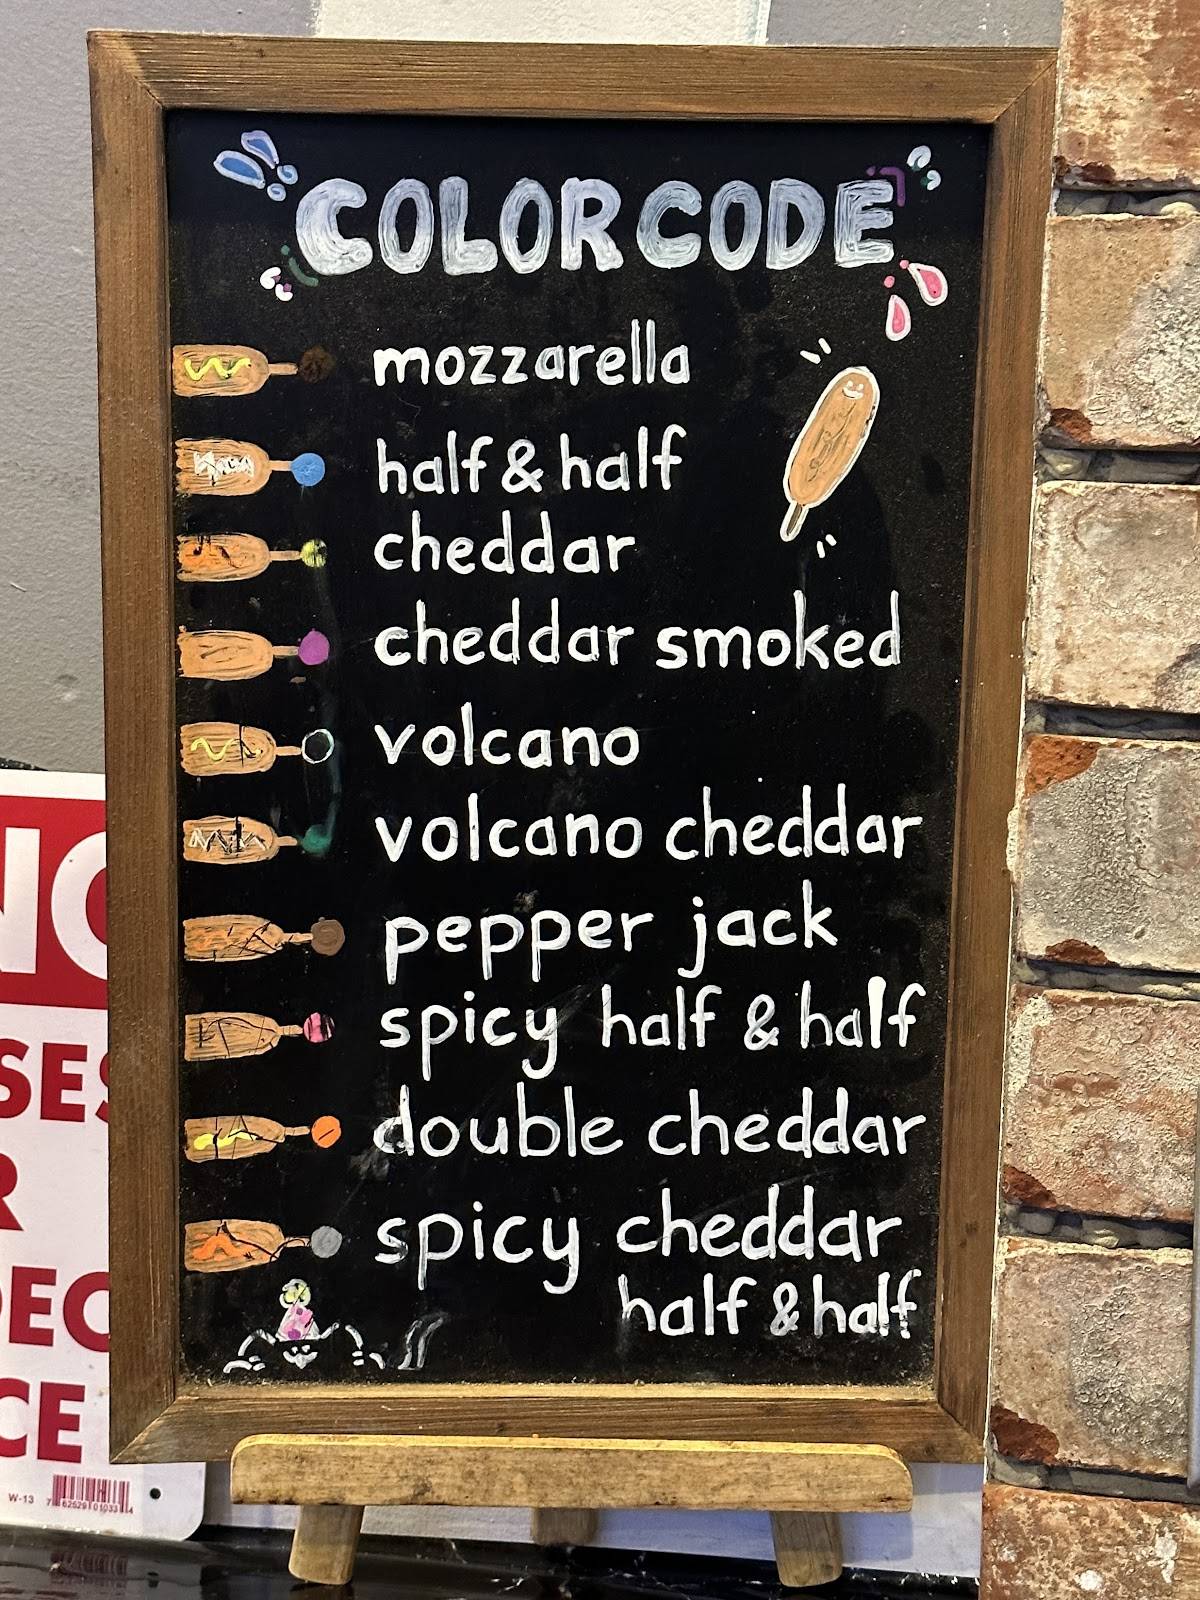 COLOR CODE
mozzarella
half & half
cheddar
cheddar smoked
volcano
volcano cheddar
pepper jack
spicy half & half
double cheddar
spicy cheddar
half & half
W-13